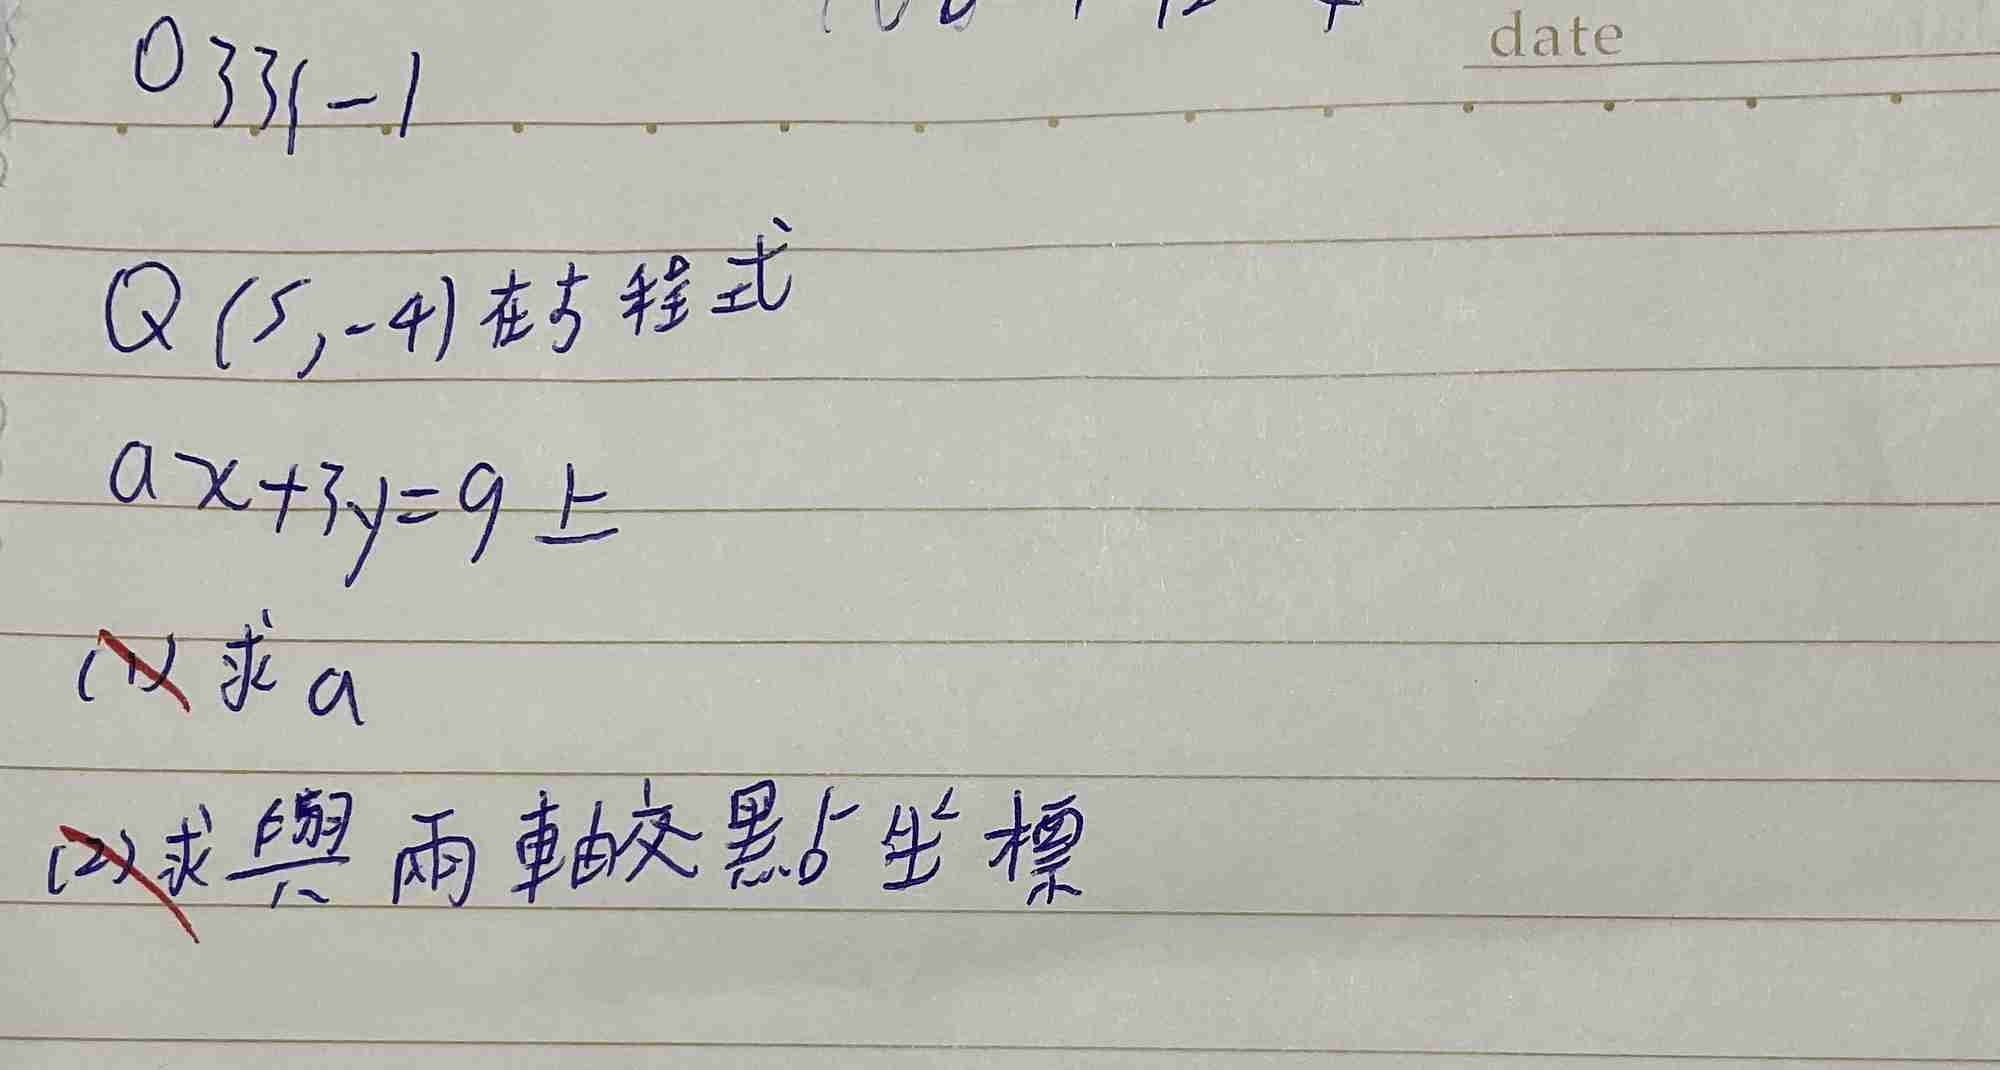 date
0331-1
Q(5,-4)在方程式
ax+3y=9上
(1)求a
(2)求與兩軸交點坐標